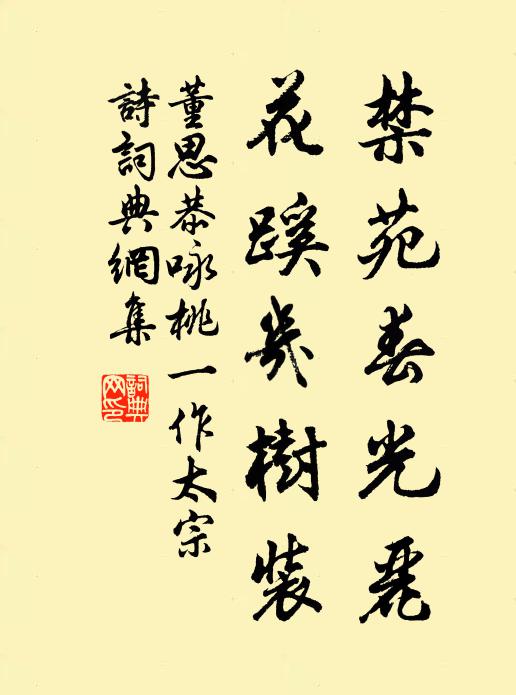 禁苑春光麗
花蹊幾樹裝
董思恭咏桃一作太宗
詩詞典網集
詞典網印